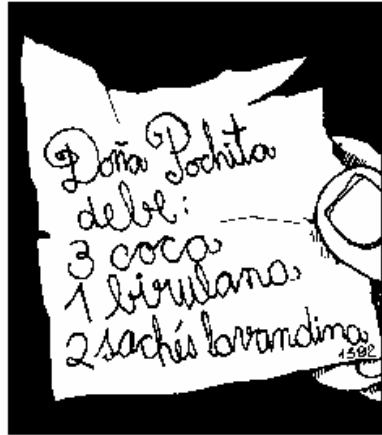 Doña Pochita
debe:
3 coca
1 birulana
2 sachés lavandina
1392